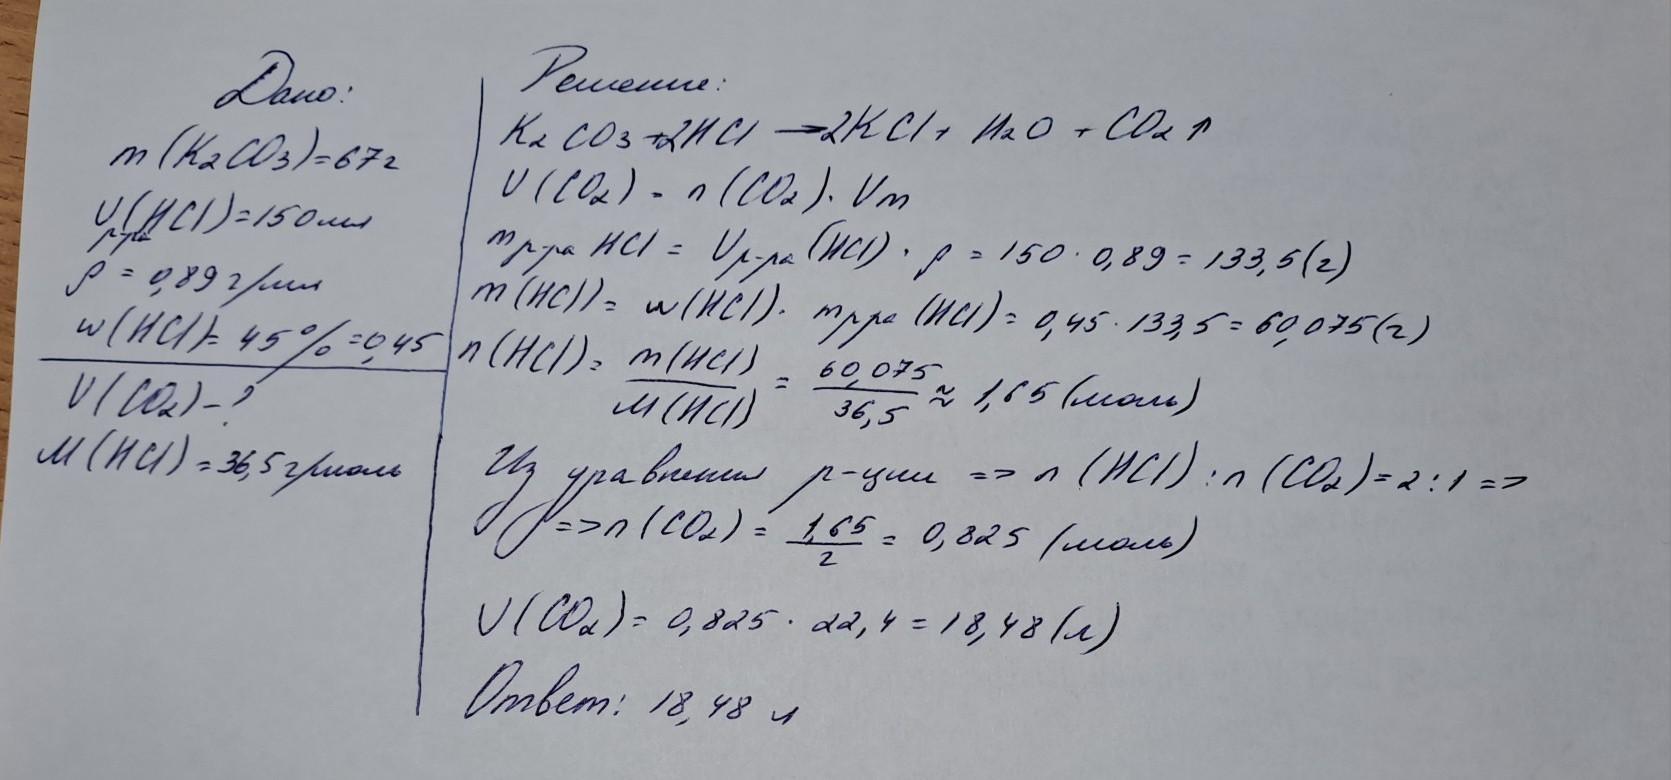 Дано:
m(K2CO3)=67г
Vр-ра(HCl)=150мл
ρ=0,89г/мл
w(HCl)=45%=0,45
V(CO2)-?
M(HCl)=36,5г/моль
Решение:
K2CO3+2HCl→2KCl+H2O+CO2↑
V(CO2)=n(CO2)·Vm
mр-ра HCl=Vр-ра(HCl)·ρ=150·0,89=133,5(г)
m(HCl)=w(HCl)·mр-ра(HCl)=0,45·133,5=60,075(г)
n(HCl)=m(HCl)/M(HCl)=60,075/36,5≈1,65(моль)
Из уравнения р-ции=>n(HCl):n(CO2)=2:1=>
=>n(CO2)=1,65/2=0,825(моль)
V(CO2)=0,825·22,4=18,48(л)
Ответ: 18,48 л